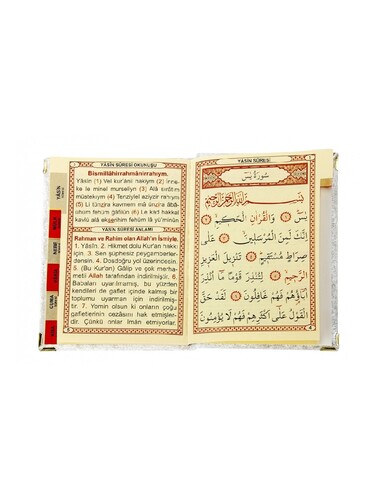 YÂSİN SÛRESİ OKUNUŞU
Bismillâhirrahmânirrahıym.
Yâsîn (1) Vel kur'ânil hakiym (2) inne-
ke le minel murseliyn (3) Alâ sırâtim
müstekiym (4) Tenziylel aziyzir rahiym
fehüm ğâfilûn (6) Le kad hakkal
YÂSİN SÛRESİ ANLAMI
Rahman ve Rahîm olan Allah'ın İsmiyle.
1. Yâsîn. 2. Hikmet dolu Kur'an hakkı
için. 3. Sen şüphesiz peygamberler-
densin. 4. Dosdoğru yol üzerindesin.
5. (Bu Kur'an) Gâlip ve çok merha-
metli Allah tarafından indirilmiştir. 6.
Babaları uyarılmamış, bu yüzden
kendileri de gaflet içinde kalmış bir
toplumu uyarman için indirilmiş-
tir. 7. Yemin olsun ki onların çoğu
gafletlerinin cezasını hak etmişler-
dir. Çünkü onlar îman etmiyorlar.
YÂSİN SÛRESİ
سورة يس
بسم الله الرحمن الرحيم
يس وَالْقُرْاٰنِ الْحَكِيمِ
اِنَّكَ لَمِنَ الْمُرْسَلِينَ عَلٰى
صِرَاطٍ مُسْتَقِيمٍ تَنْزِيلَ الْعَزِيزِ
الرَّحِيمِ لِتُنْذِرَ قَوْمًا مَا اُنْذِرَ
اٰبَاؤُهُمْ فَهُمْ غَافِلُونَ لَقَدْ حَقَّ
الْقَوْلُ عَلٰى اَكْثَرِهِمْ فَهُمْ لَا يُؤْمِنُونَ
YÂSİN
CUMA